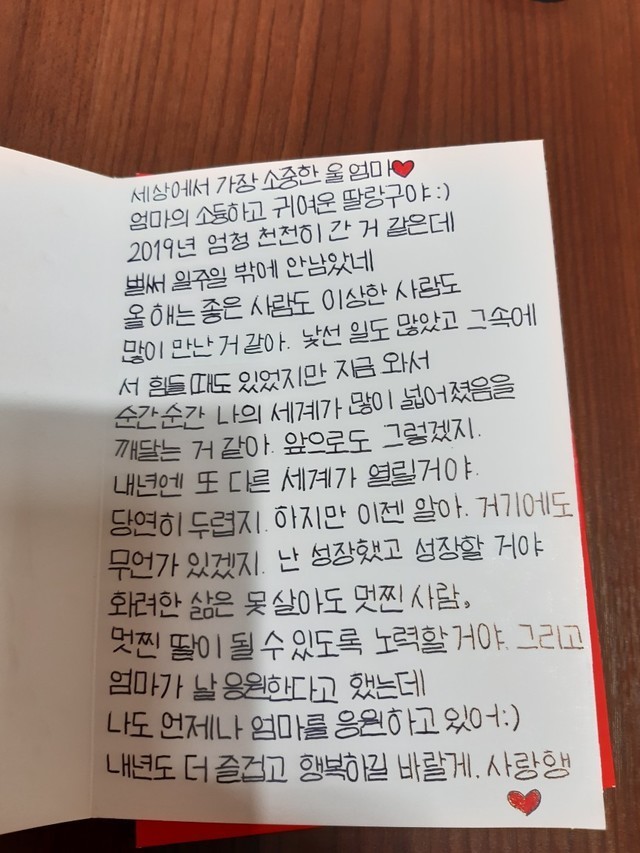 세상에서 가장 소중한 울 엄마♥
엄마의 소듕하고 귀여운 딸랑구야:)
2019년 엄청 천천히 간 거 같은데
벌써 일주일 밖에 안남았네
올 해는 좋은 사람도 이상한 사람도
많이 만난 거 같아. 낯선 일도 많았고 그속에
서 힘들 때도 있었지만 지금 와서
순간순간 나의 세계가 많이 넓어졌음을
깨달는 거 같아. 앞으로도 그렇겠지.
내년엔 또 다른 세계가 열릴거야.
당연히 두렵지. 하지만 이젠 알아. 거기에도
무언가 있겠지. 난 성장했고 성장할 거야
화려한 삶은 못 살아도 멋찐 사람,
멋찐 딸이 될 수 있도록 노력할 거야. 그리고
엄마가 날 응원한다고 했는데
나도 언제나 엄마를 응원하고 있어:)
내년도 더 즐겁고 행복하길 바랄게. 사랑행
♥